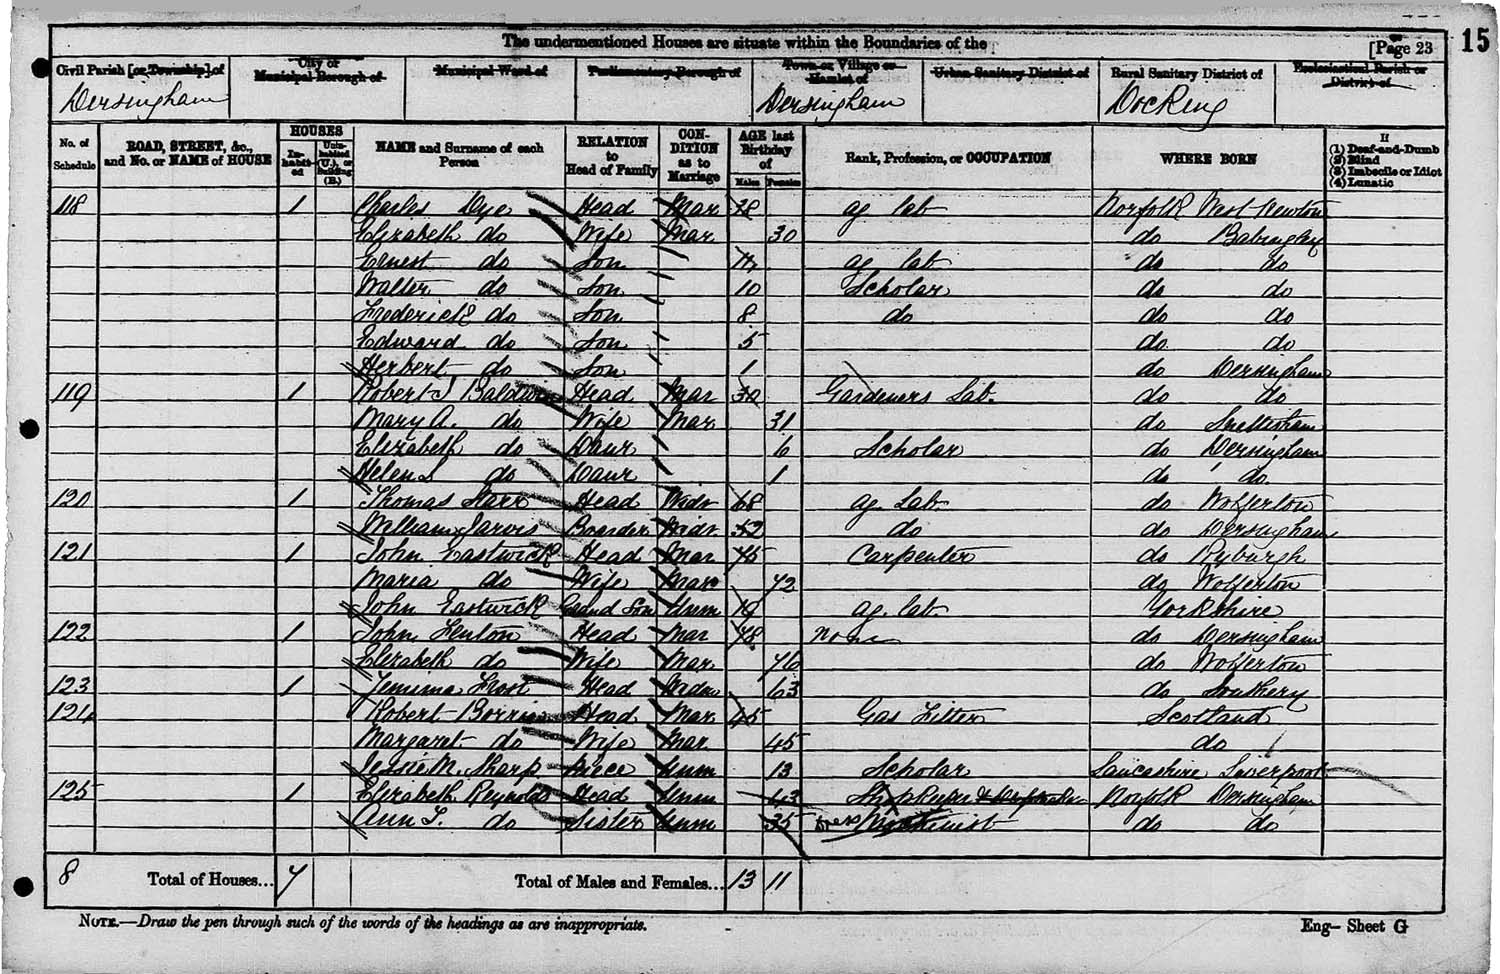 The undermentioned Houses are situate within the Boundaries of the
[Page 23
15
Civil Parish [or Township] of
City or Municipal Borough of
Municipal Ward of
Parliamentary Borough of
Town or Village or Hamlet of
Urban Sanitary District of
Rural Sanitary District of
Ecclesiastical Parish or District of
Dersingham Dersingham Docking
No. of Schedule
ROAD, STREET, &c., and No. or NAME of HOUSE
HOUSES
In-habit-ed
Unin-habited (U.), or Building (B.)
NAME and Surname of each Person
RELATION to Head of Family
CON-DITION as to Marriage
AGE last Birthday of
Males Females
Rank, Profession, or OCCUPATION
WHERE BORN
If
(1) Deaf-and-Dumb
(2) Blind
(3) Imbecile or Idiot
(4) Lunatic
118 1 Charles Dye Head Mar 38 ag lab Norfolk West Newton
Elizabeth do Wife Mar 30 do Babingley
Ernest do Son ag lab do do
Walter do Son 10 Scholar do do
Frederick do Son 8 do do do
Edward do Son 5 do do
Herbert do Son 1 do Dersingham
119 1 Robert J Baldwin Head Mar 30 Gardeners Lab. do do
Mary A. do Wife Mar 31 do Snettisham
Elizabeth do Daur 6 Scholar do Dersingham
Helen L do Daur 1 do do
120 1 Thomas Starr Head Widr 68 ag Lab do Wolferton
William Jarvis Boarder Widr 52 do do Dersingham
121 1 John Eastwick Head Mar 75 Carpenter do Ryburgh
Maria do Wife Mar 72 do Wolferton
John Eastwick Grand Son Unm 19 ag. lab Yorkshire
122 1 John Fenton Head Mar 78 none do Dersingham
Elizabeth do Wife Mar 76 do Wolferton
123 1 Jemima Frost Head Widw 63 do Southery
124 Robert Head Mar 45 Gas Fitter Scotland
Margaret do Wife Mar 45 do
Jessie M. Sharp Niece Unm 13 Scholar Lancashire Liverpool
125 1 Elizabeth Reynolds Head Unm 43 Norfolk Dersingham
Ann L. do Sister Unm 35 Dress Machinist do do
8 Total of Houses... 7 Total of Males and Females... 13 11
NOTE.—Draw the pen through such of the words of the headings as are inappropriate.
Eng— Sheet G